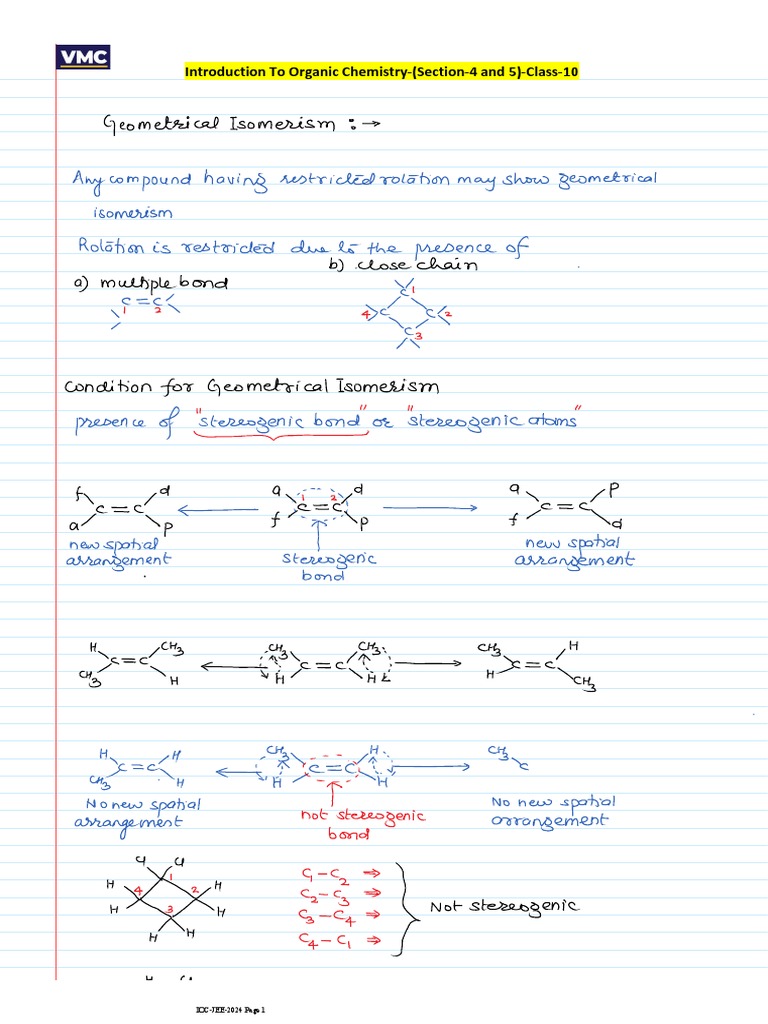 VMC
Introduction To Organic Chemistry-(Section-4 and 5)-Class-10
Geometrical Isomerism :→
Any compound having restricted rotation may show geometrical
isomerism
Rotation is restricted due to the presence of
a) multiple bond
b) close chain
C=C
1 2
C 1
4 C C 2
C 3
Condition for Geometrical Isomerism
presence of "stereogenic bond" or "stereogenic atoms"
f d
C=C
a p
new spatial
arrangement
a d
1 2
C=C
f p
stereogenic
bond
a p
C=C
f d
new spatial
arrangement
H CH3
C=C
CH3 H
CH3 CH3
C=C
H H
CH3 H
C=C
H CH3
H H
C=C
CH3 H
No new spatial
arrangement
CH3 H
C=C
H H
not stereogenic
bond
CH3
C
No new spatial
arrangement
Cl Cl
H 1 H
4 2
H 3 H
H H
C1-C2 ⇒
C2-C3 ⇒
C3-C4 ⇒
C4-C1 ⇒
Not stereogenic
IOC-JEE-2024 Page 1